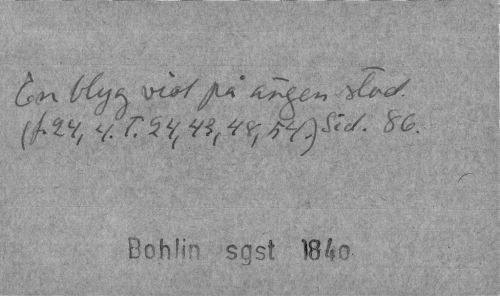 En blyg viol på ängen stod.
(f. 24, 4. T. 24, 43, 48, 54.) Sid. 86.
Bohlin sgst 1840